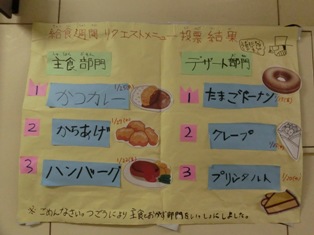 給食週間リクエストメニュー投票結果
主食部門
デザート部門
1 かつカレー
1 たまごドーナツ
2 からあげ
2 クレープ
3 ハンバーグ
3 プリンタルト
※ごめんなさい。つごうにより主食とおかず部門をいっしょにしました。